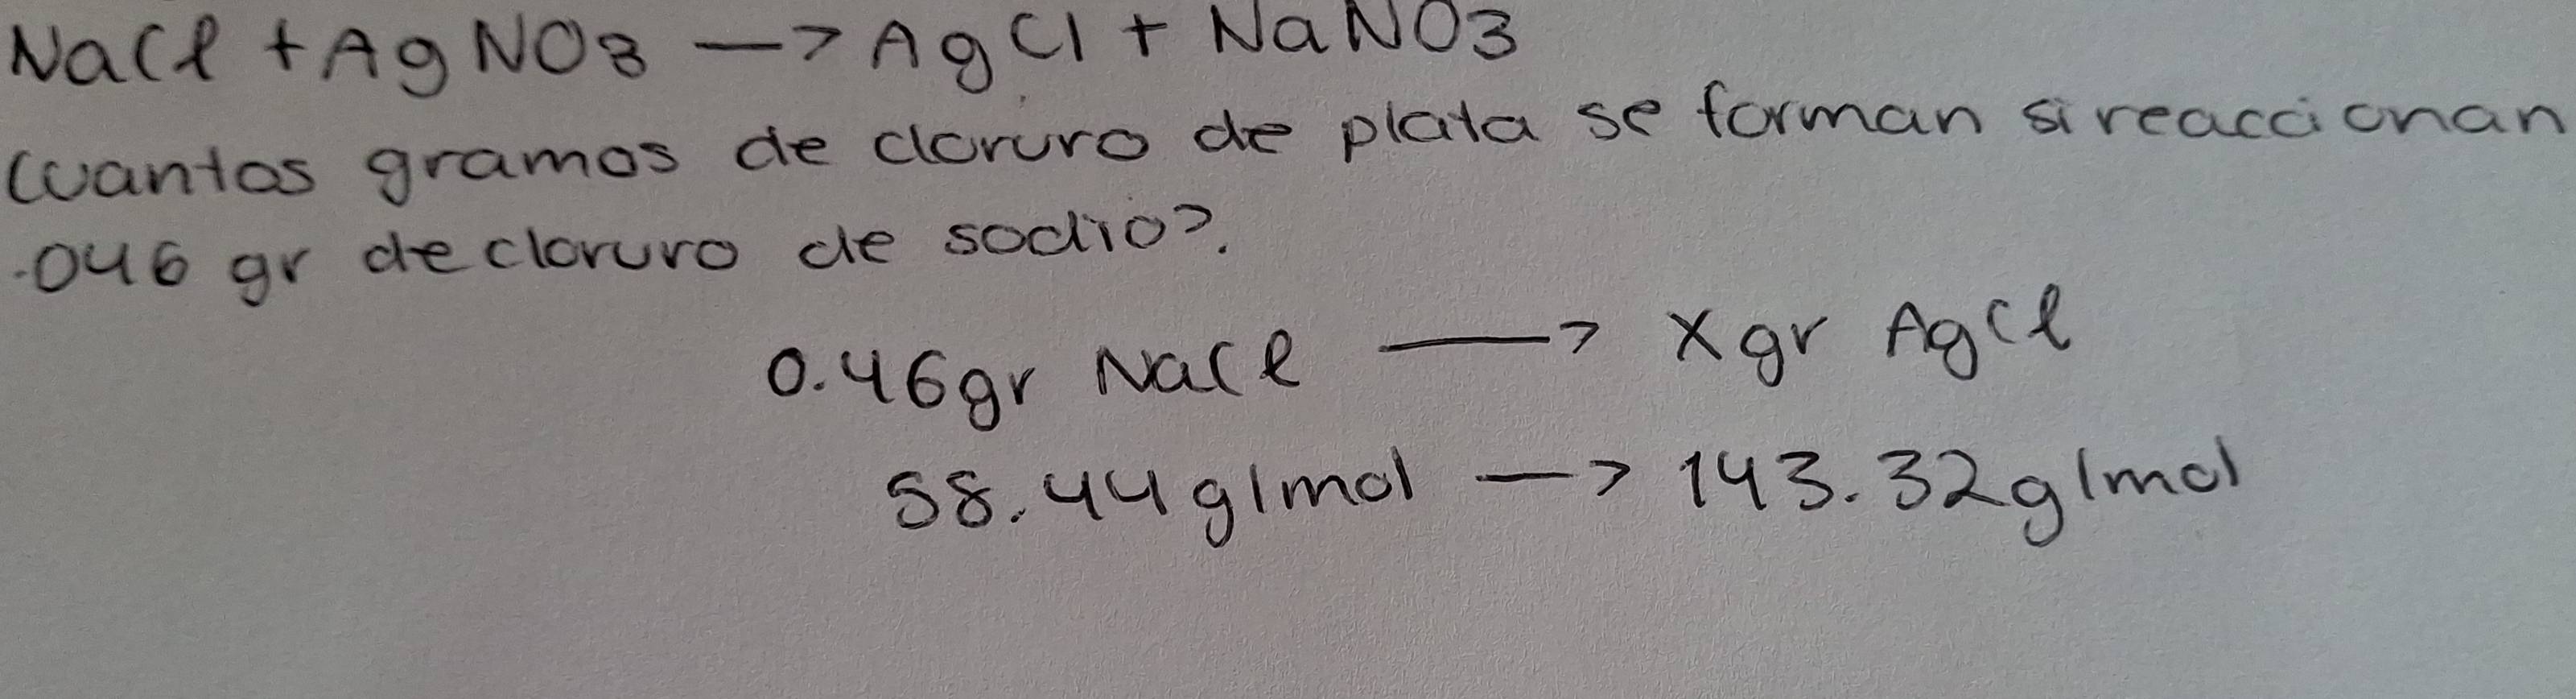 NaCl + AgNO3 → AgCl + NaNO3
Cuantos gramos de cloruro de plata se forman si reaccionan
.046 gr de cloruro de sodio?.
0.46gr NaCl → X gr AgCl
58.44g/mol → 143.32g/mol